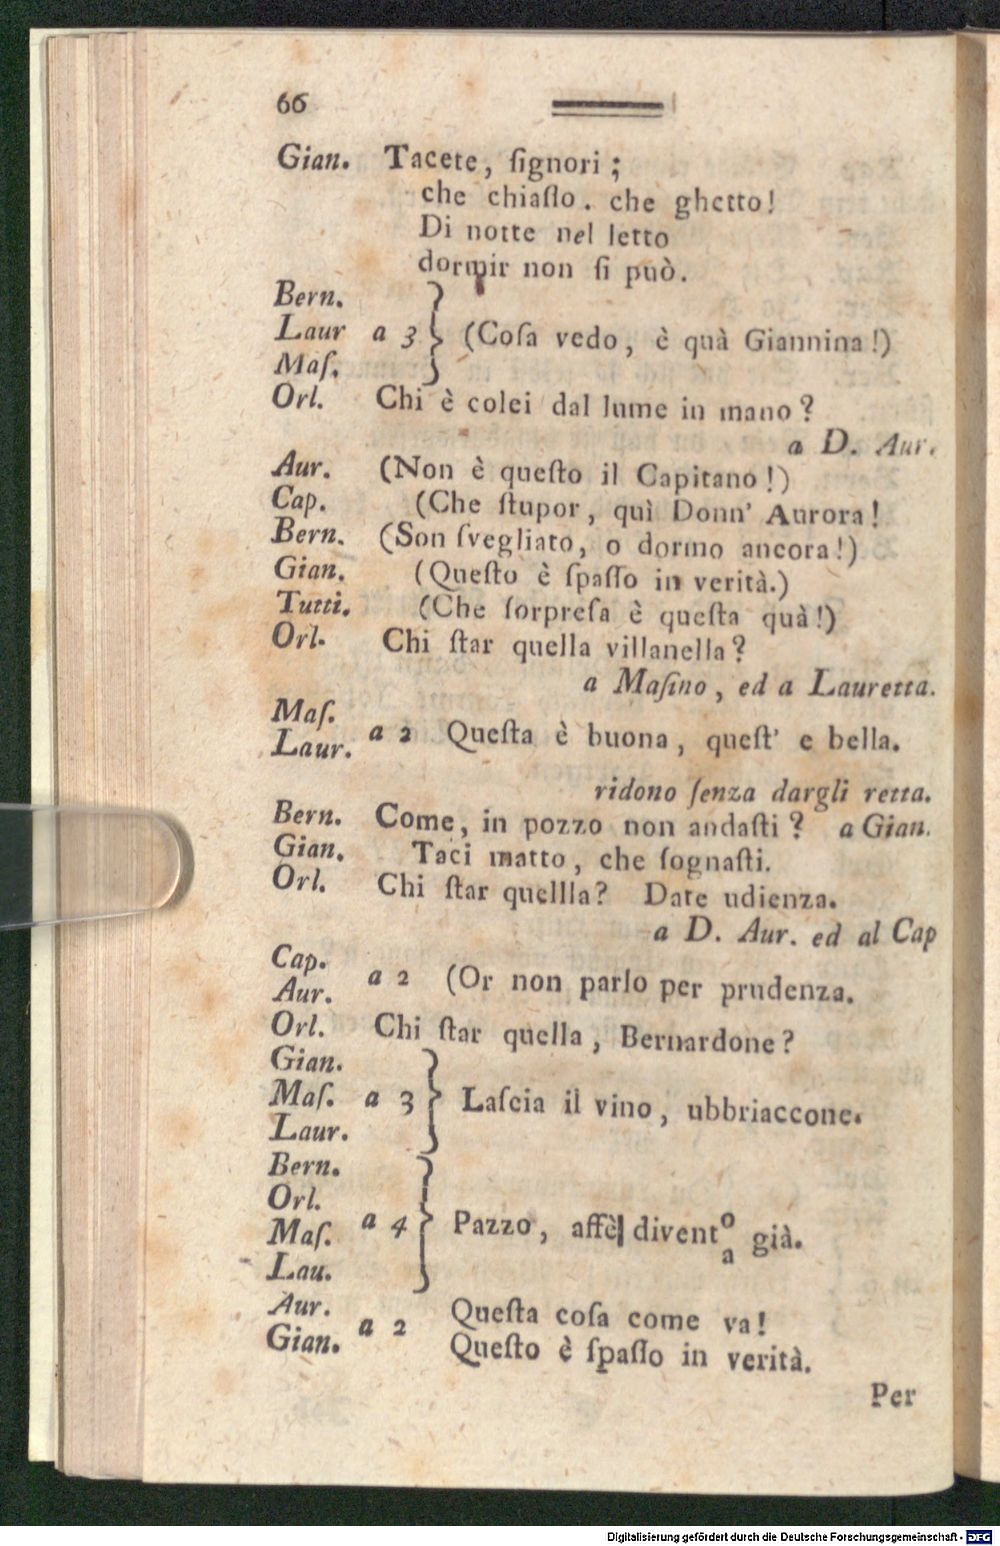 66
Gian. Tacete, ſignori;
che chiaſſo. che ghetto!
Di notte nel letto
dormir non ſi può.
Bern.
Laur a 3 } (Coſa vedo, è quà Giannina!)
Maſ.
Orl. Chi è colei dal lume in mano?
a D. Aur.
Aur. (Non è queſto il Capitano!)
Cap. (Che ſtupor, quì Donn' Aurora!
Bern. (Son ſvegliato, o dormo ancora!)
Gian. (Queſto è ſpaſſo in verità.)
Tutti. (Che ſorpreſa è queſta quà!)
Orl. Chi ſtar quella villanella?
a Maſino, ed a Lauretta.
Maſ.
Laur. a 2 Queſta è buona, queſt' e bella.
ridono ſenza dargli retta.
Bern. Come, in pozzo non andaſti? a Gian.
Gian. Taci matto, che ſognaſti.
Orl. Chi ſtar quellla? Date udienza.
a D. Aur. ed al Cap
Cap.
Aur. a 2 (Or non parlo per prudenza.
Orl. Chi ſtar quella, Bernardone?
Gian.
Maſ. a 3 } Laſcia il vino, ubbriaccone.
Laur.
Bern.
Orl.
Maſ. a 4 } Pazzo, affè| divent o/a già.
Lau.
Aur. a 2 Queſta coſa come va!
Gian. Queſto è ſpaſſo in verità.
Per
Digitalisierung gefördert durch die Deutsche Forschungsgemeinschaft - DFG